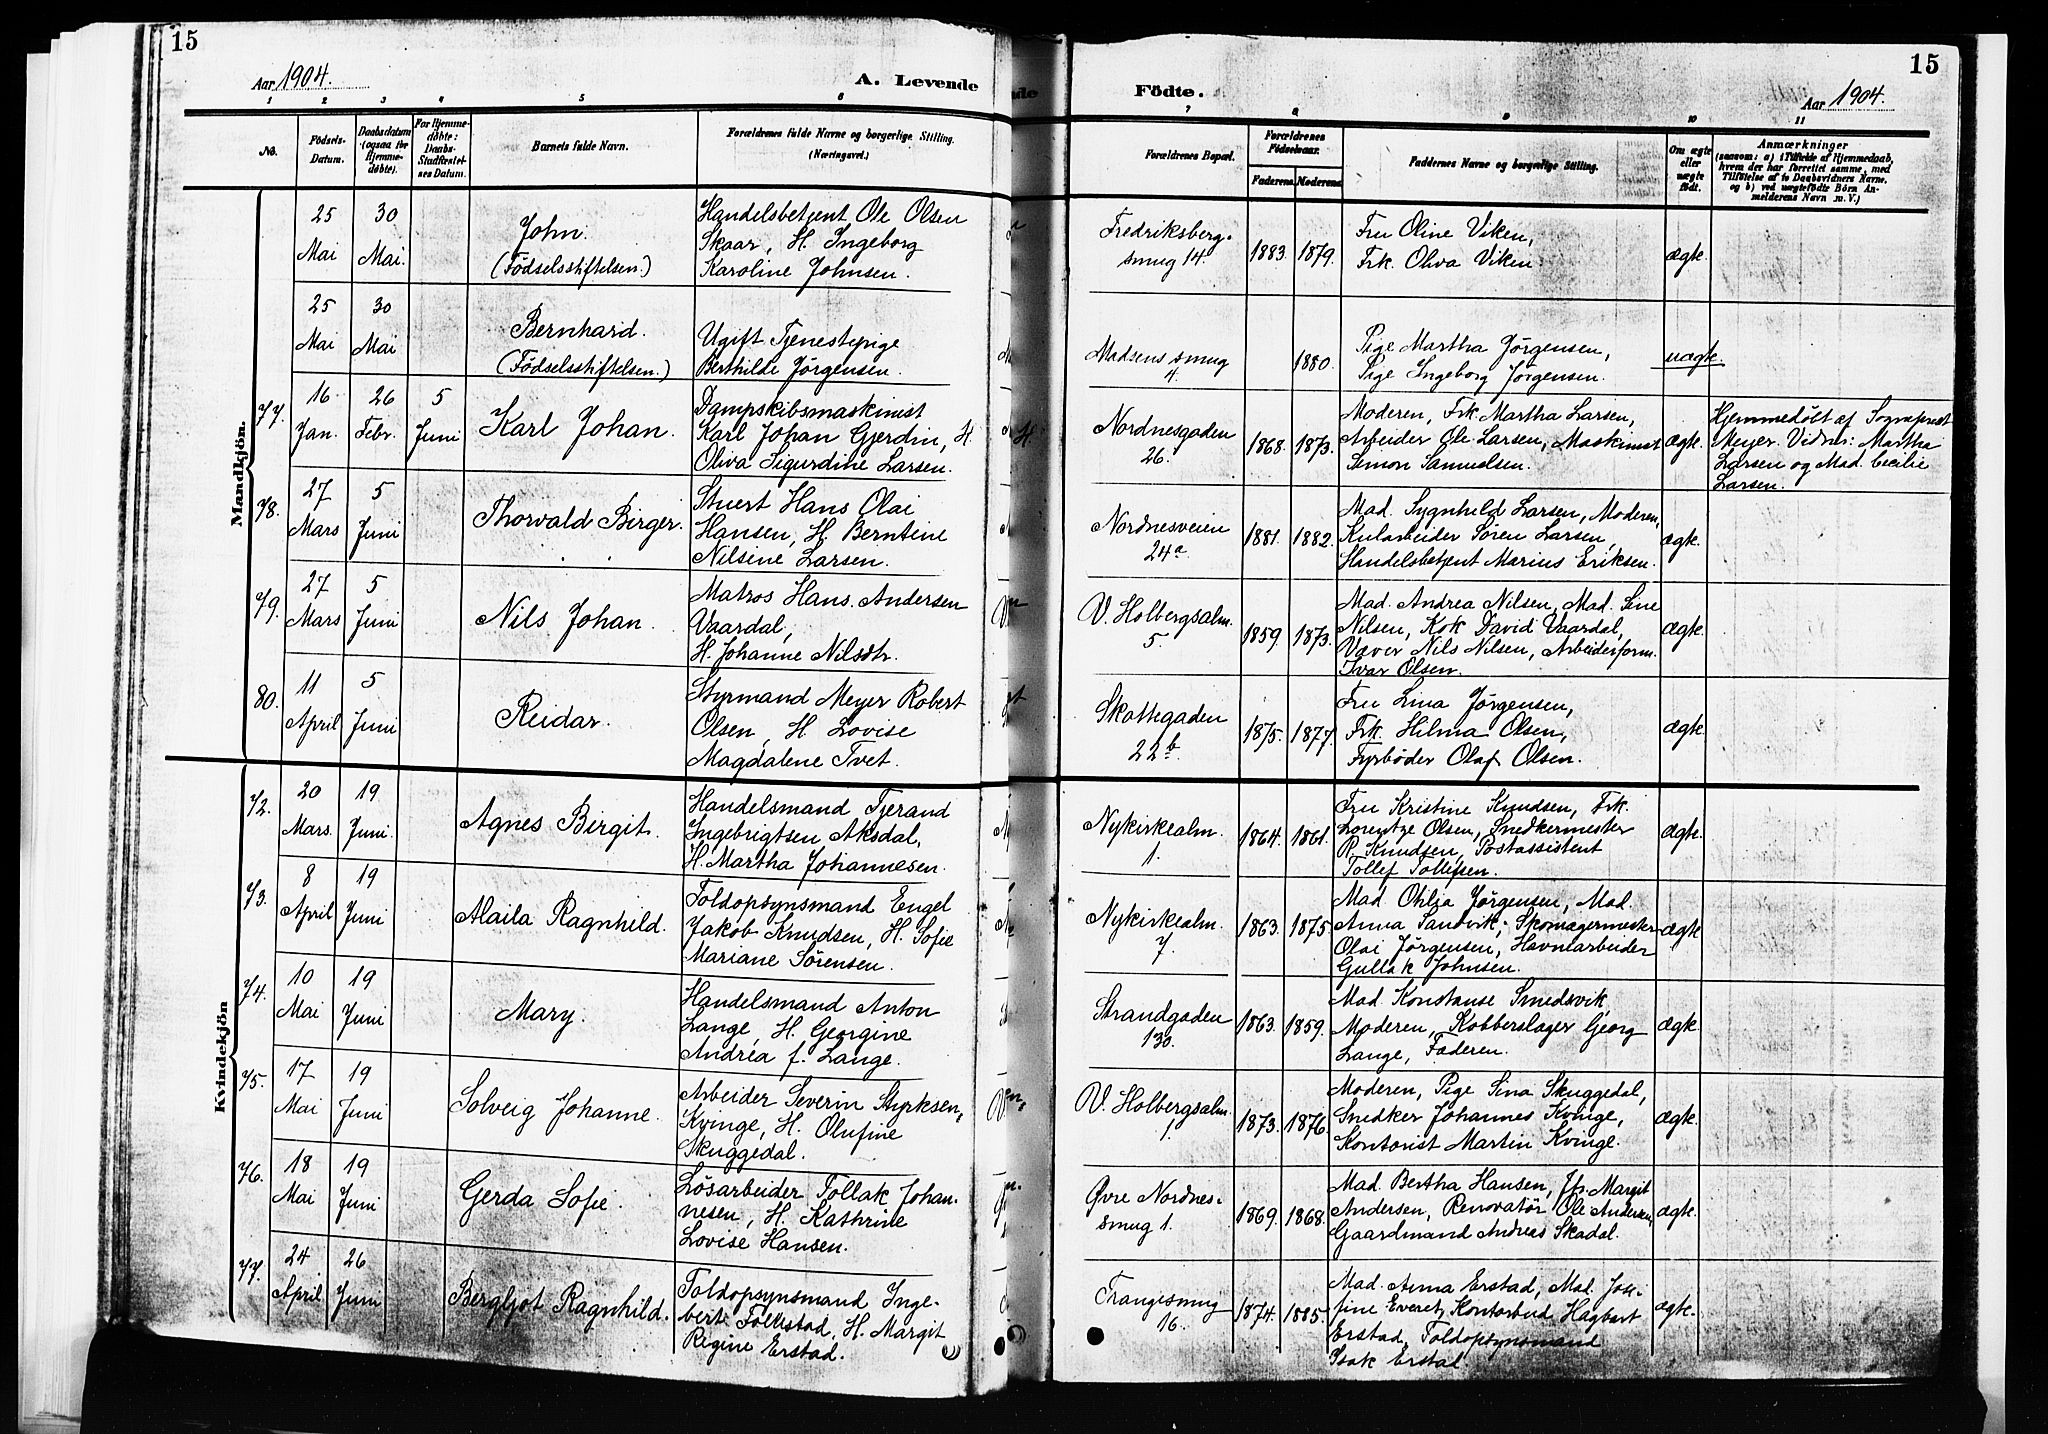 15
Aar 1904.
A. Levende
1 2 3 4 5 6
No.
Fødsels-
Datum.
Daabsdatum
(ogsaa for
Hjemme-
døbte).
For Hjemme-
døbte:
Daabs-
Stadfæstel-
ses Datum.
Barnets fulde Navn.
Forældrenes fulde Navne og borgerlige Stilling.
(Næringsvei.)
Mandkjön.
25
Mai
30
Mai.
John.
(Fødselsstiftelsen.)
Handelsbetjent Ole Olsen
Skaar, H. Ingeborg
Karoline Johnsen.
25
Mai
30
Mai
Bernhard.
(Fødselsstiftelsen.)
Ugift Tjenestepige
Berthilde Jørgensen.
77.
16
Jan.
26
Febr.
5
Juni
Karl Johan.
Dampskibsmaskinist
Karl Johan Gjerdin, H.
Oliva Sigurdine Larsen.
78.
27
Mars
5
Juni
Thorvald Birger.
Stuert Hans Olai
Hansen, H. Berntine
Nilsine Larsen.
79.
27
Mars
5
Juni
Nils Johan.
Matros Hans Andersen
Vaardal,
H. Johanne Nilsdtr.
80.
11
April
5
Juni
Reidar.
Styrmand Meyer Robert
Olsen, H. Lovise
Magdalene Tvet.
Kvindekjön
72.
20
Mars.
19
Juni.
Agnes Birgit.
Handelsmand Tjerand
Ingebrigtsen Aksdal,
H. Martha Johannesen.
73.
8
April
19
Juni
Alaila Ragnhild.
Toldopsynsmand Engel
Jakob Knudsen, H. Sofie
Mariane Sørensen.
74.
10
Mai
19
Juni
Mary.
Handelsmand Anton
Lange, H. Georgine
Andrea f. Lange.
75.
17
Mai
19
Juni
Solveig Johanne.
Arbeider Severin Styrksen,
Kvinge, H. Olufine
Skuggedal.
76.
18
Mai
19
Juni
Gerda Sofie.
Løsarbeider Tollak Johan-
nesen, H. Kathrine
Lovise Hansen.
77.
24
April
26
Juni
Bergljot Ragnhild.
Toldopsynsmand Inge-
bert Folkestad, H. Margit
Regine Erstad.
15
Födte.
Aar 1904.
7 8 9 10 11
Forældrenes Bopæl.
Forældrenes
Fødselsaar.
Faderens. Moderens.
Faddernes Navne og borgerlige Stilling.
Om ægte
eller
uægte
født.
Anmærkninger
(saasom: a) i Tilfælde af Hjemmedaab,
hvem der har forrettet samme, med
Tilføielse af to Daabsvidners Navne,
og b) ved uægtefødte Børn An-
melderens Navn m. V.)
Fredriksberg-
smug 14.
1883. 1879.
Fru Oline Viken,
Frk. Oliva Viken
ægte.
Madsens smug
4.
1880.
Pige Martha Jørgensen,
Pige Ingeborg Jørgensen.
uægte.
Nordnesgaden
26.
1868. 1873.
Moderen, Frk. Martha Larsen,
Arbeider Ole Larsen, Maskinist
Simon Samuelsen.
ægte.
Hjemmedøbt af Sognepræst
Meyer. Vidner: Martha
Larsen og Mad. Cecilie
Larsen.
Nordnesveien
24a
1881. 1882.
Mad. Sygnhild Larsen, Moderen,
Kularbeider Søren Larsen,
Handelsbetjent Marius Eriksen.
ægte.
V. Holbergsalm.
5.
1859. 1873.
Mad. Andrea Nilsen, Mad. Sine
Nilsen, Kok David Vaardal,
Væver Nils Nilsen, Arbeiderform.
Ivar Olsen.
ægte.
Skottegaden
22b.
1875. 1877.
Fru Lina Jørgensen,
Frk. Hilma Olsen,
Fyrbøder Olaf Olsen.
ægte.
Nykirkealm.
1.
1864. 1861.
Fru Kristine Knudsen, Frk.
Lorentze Olsen, Snedkermester
R. Knudsen, Postassistent
Tollef Tollefsen.
ægte.
Nykirkealm.
7.
1863. 1875
Mad. Ohlia Jørgensen, Mad.
Anna Sandvik, Skomagermester
Olai Jørgensen, Havnearbeider
Gullak Johnsen.
ægte
Strandgaden
130.
1863. 1859.
Mad. Konstanse Smedsvik,
Moderen, Kobberslager Georg
Lange, Faderen.
ægte.
V. Holbergsalm.
1.
1873. 1876.
Moderen, Pige Sina Skuggedal,
Snedker Johannes Kvinge,
Kontorist Martin Kvinge.
ægte.
Øvre Nordnes-
smug 1.
1869. 1868.
Mad. Bertha Hansen, Jfr. Margit
Andersen, Renovatør Ole Andersen,
Gaardmand Andreas Skadal.
ægte.
Trangesmug
16.
1874. 1885.
Mad. Anna Erstad, Mad. Jose-
fine Everet, Kontorbud Hagbart
Erstad, Toldopsynsmand
Isak Erstad
ægte.